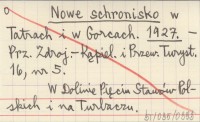 Nowe schronisko w
Tatrach i w Gorcach. 1927. —
Prz. Zdroj.-Kąpiel. i Przew. Turyst.
16, nr 5.
W Dolinie Pięciu Stawów Pol-
skich i na Turbaczu.